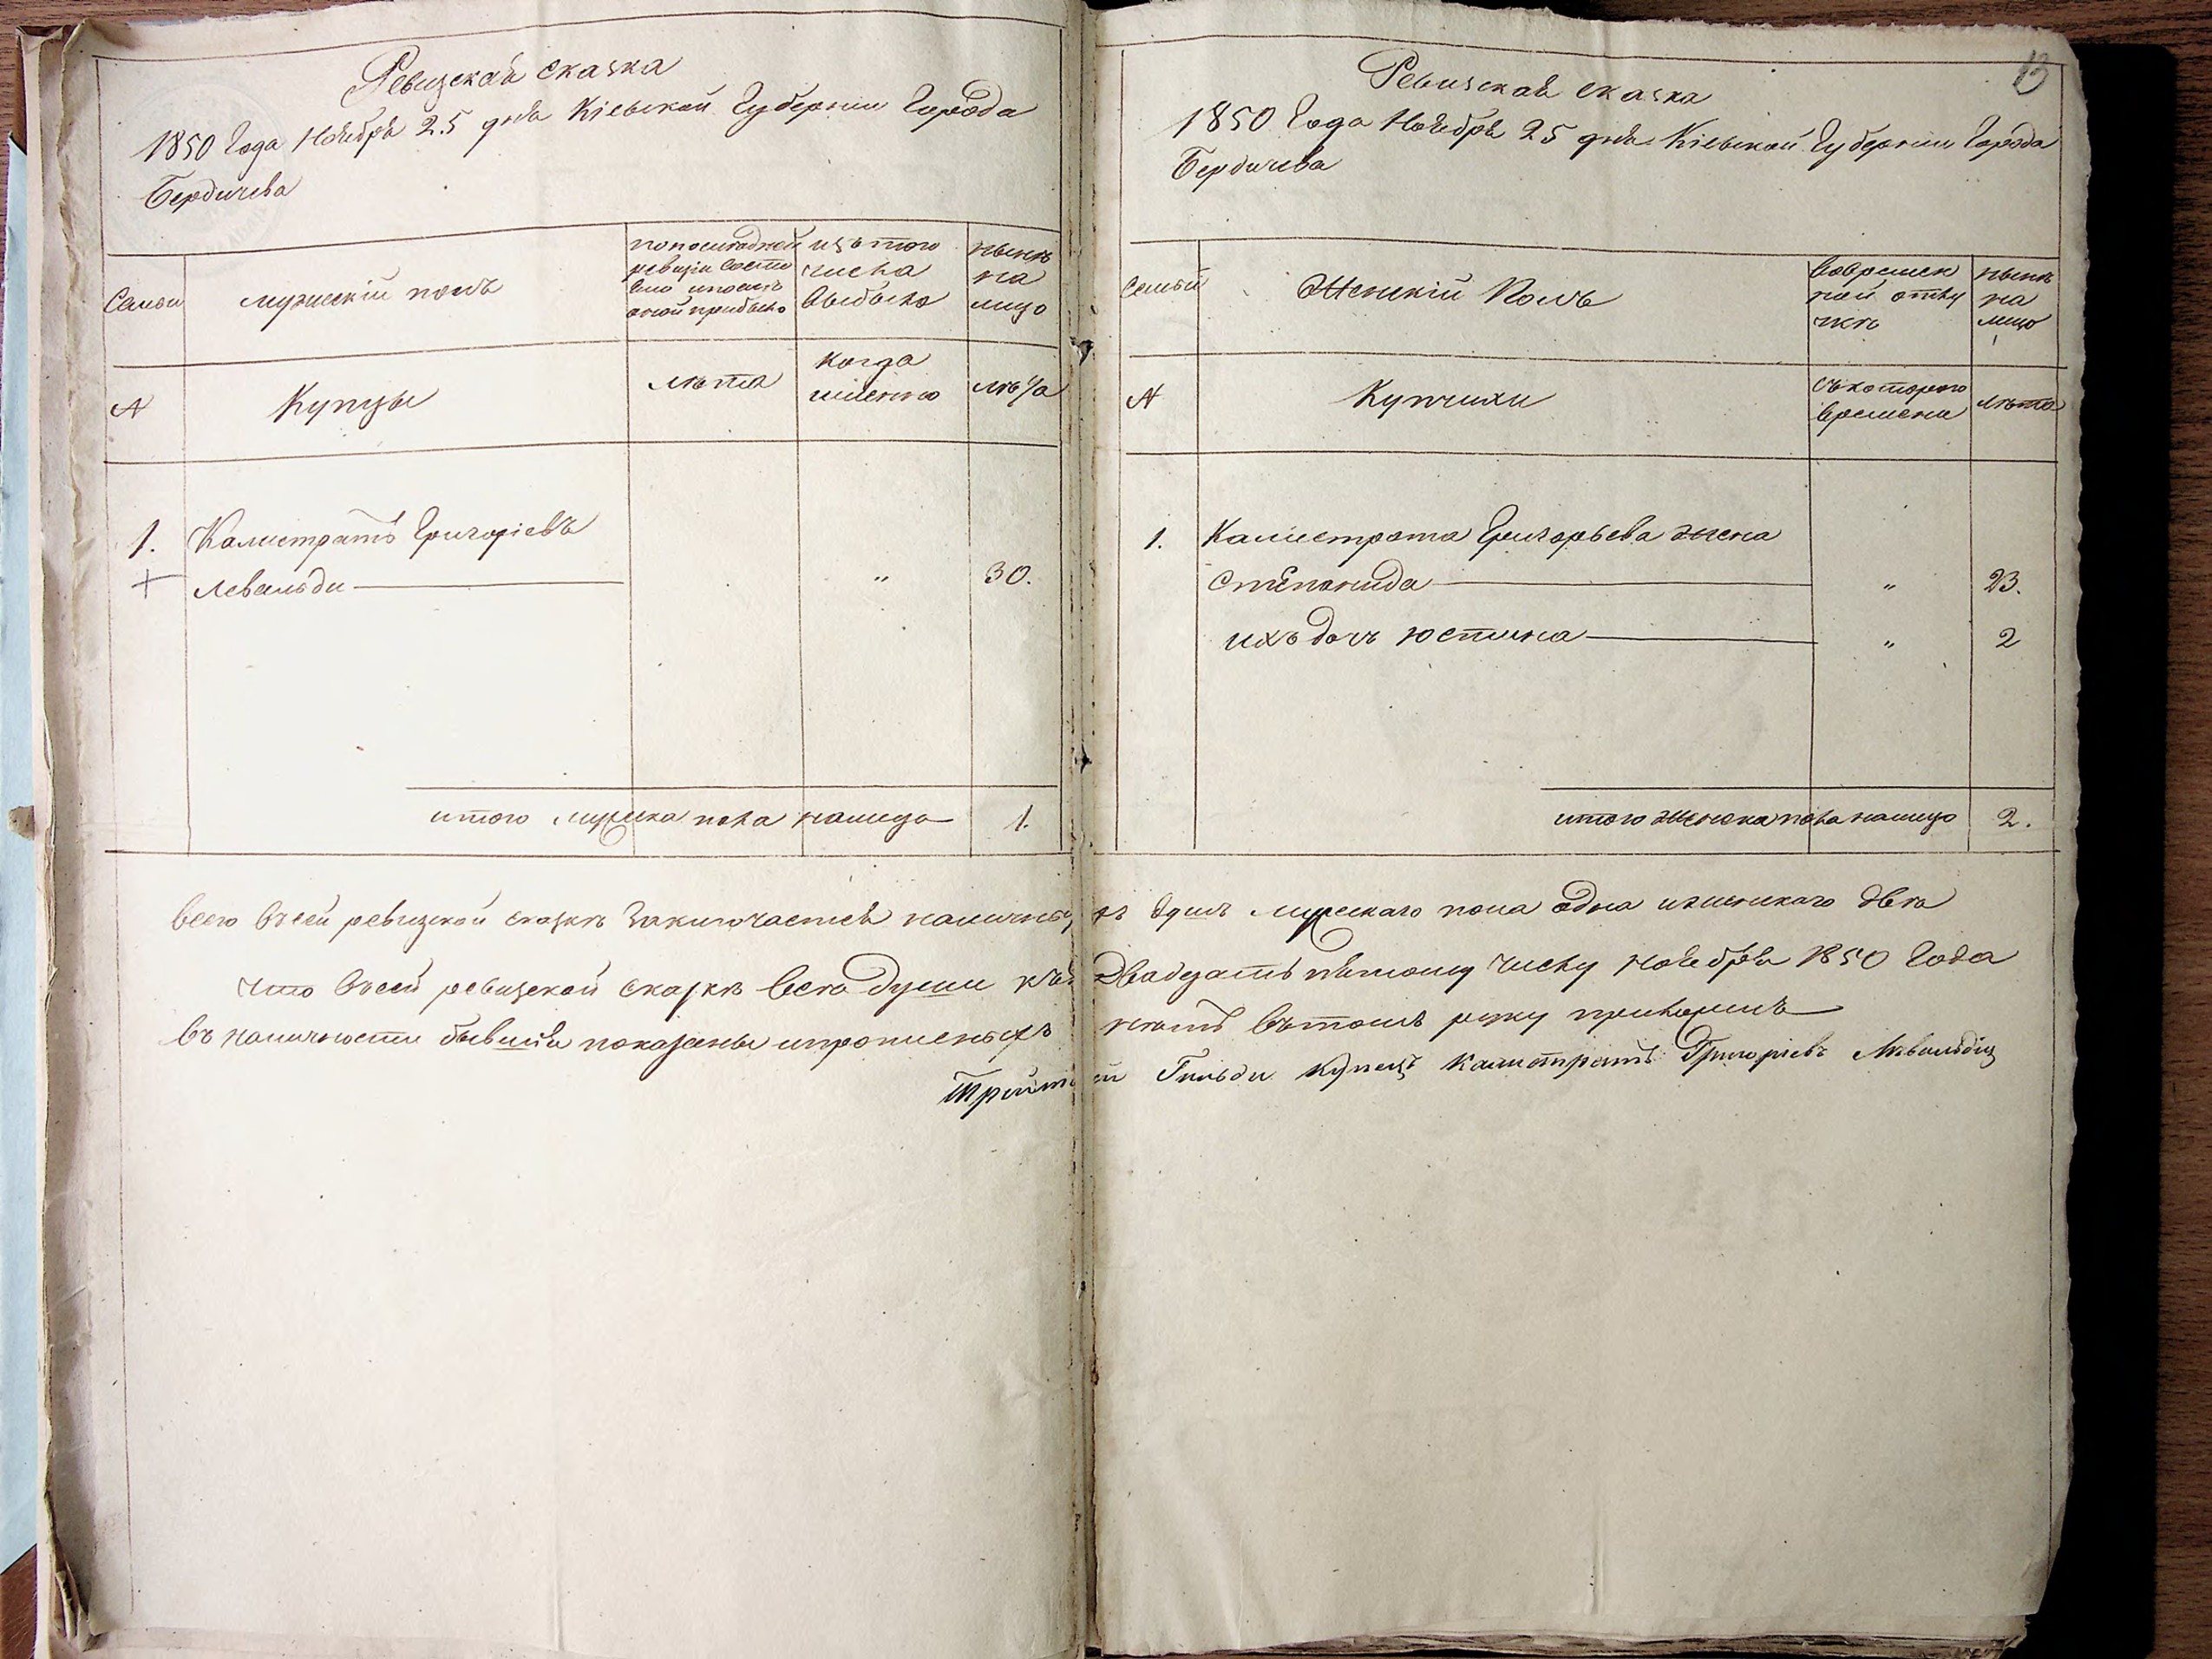 Ревизская сказка
1850 Года Ноября 25 дня Кіевской Губерніи Города
Бердичева
Семьи
мужескій полъ
попоследней
ревизіи состо
яло ипослѣ
оной прибыло
изъ того
числа
выбыло
нынѣ
на
лицо
№
Купцы
лѣта
когда
именно
лѣта
1. Калистратъ Григоріевъ
Левальди " 30.
итого мужска пола налицо 1.
13
Ревизская сказка
1850 Года Ноября 25 дня Кіевской Губерніи Города
Бердичева
Семьи
Женскій Полъ
вовремен
ной отлу
чкѣ
нынѣ
на
лицо
№
Купчихи
съкотораго
времени
лѣта
1. Калистрата Григорьева жена
Степанида " 23.
ихъ дочь Юстина " 2
итого женска пола налицо 2.
всего всей ревизской сказкѣ заключается наличныхъ душъ мужескаго пола одна иженскаго двѣ
что всей ревизской сказкѣ всѣ души къ двадцать пятому числу ноября 1850 Года
въ наличности бывшія показаны ипрописныхъ нѣтъ вътомъ руку приложилъ
Третей Гильди купецъ Калистратъ Григоріевъ Левальди